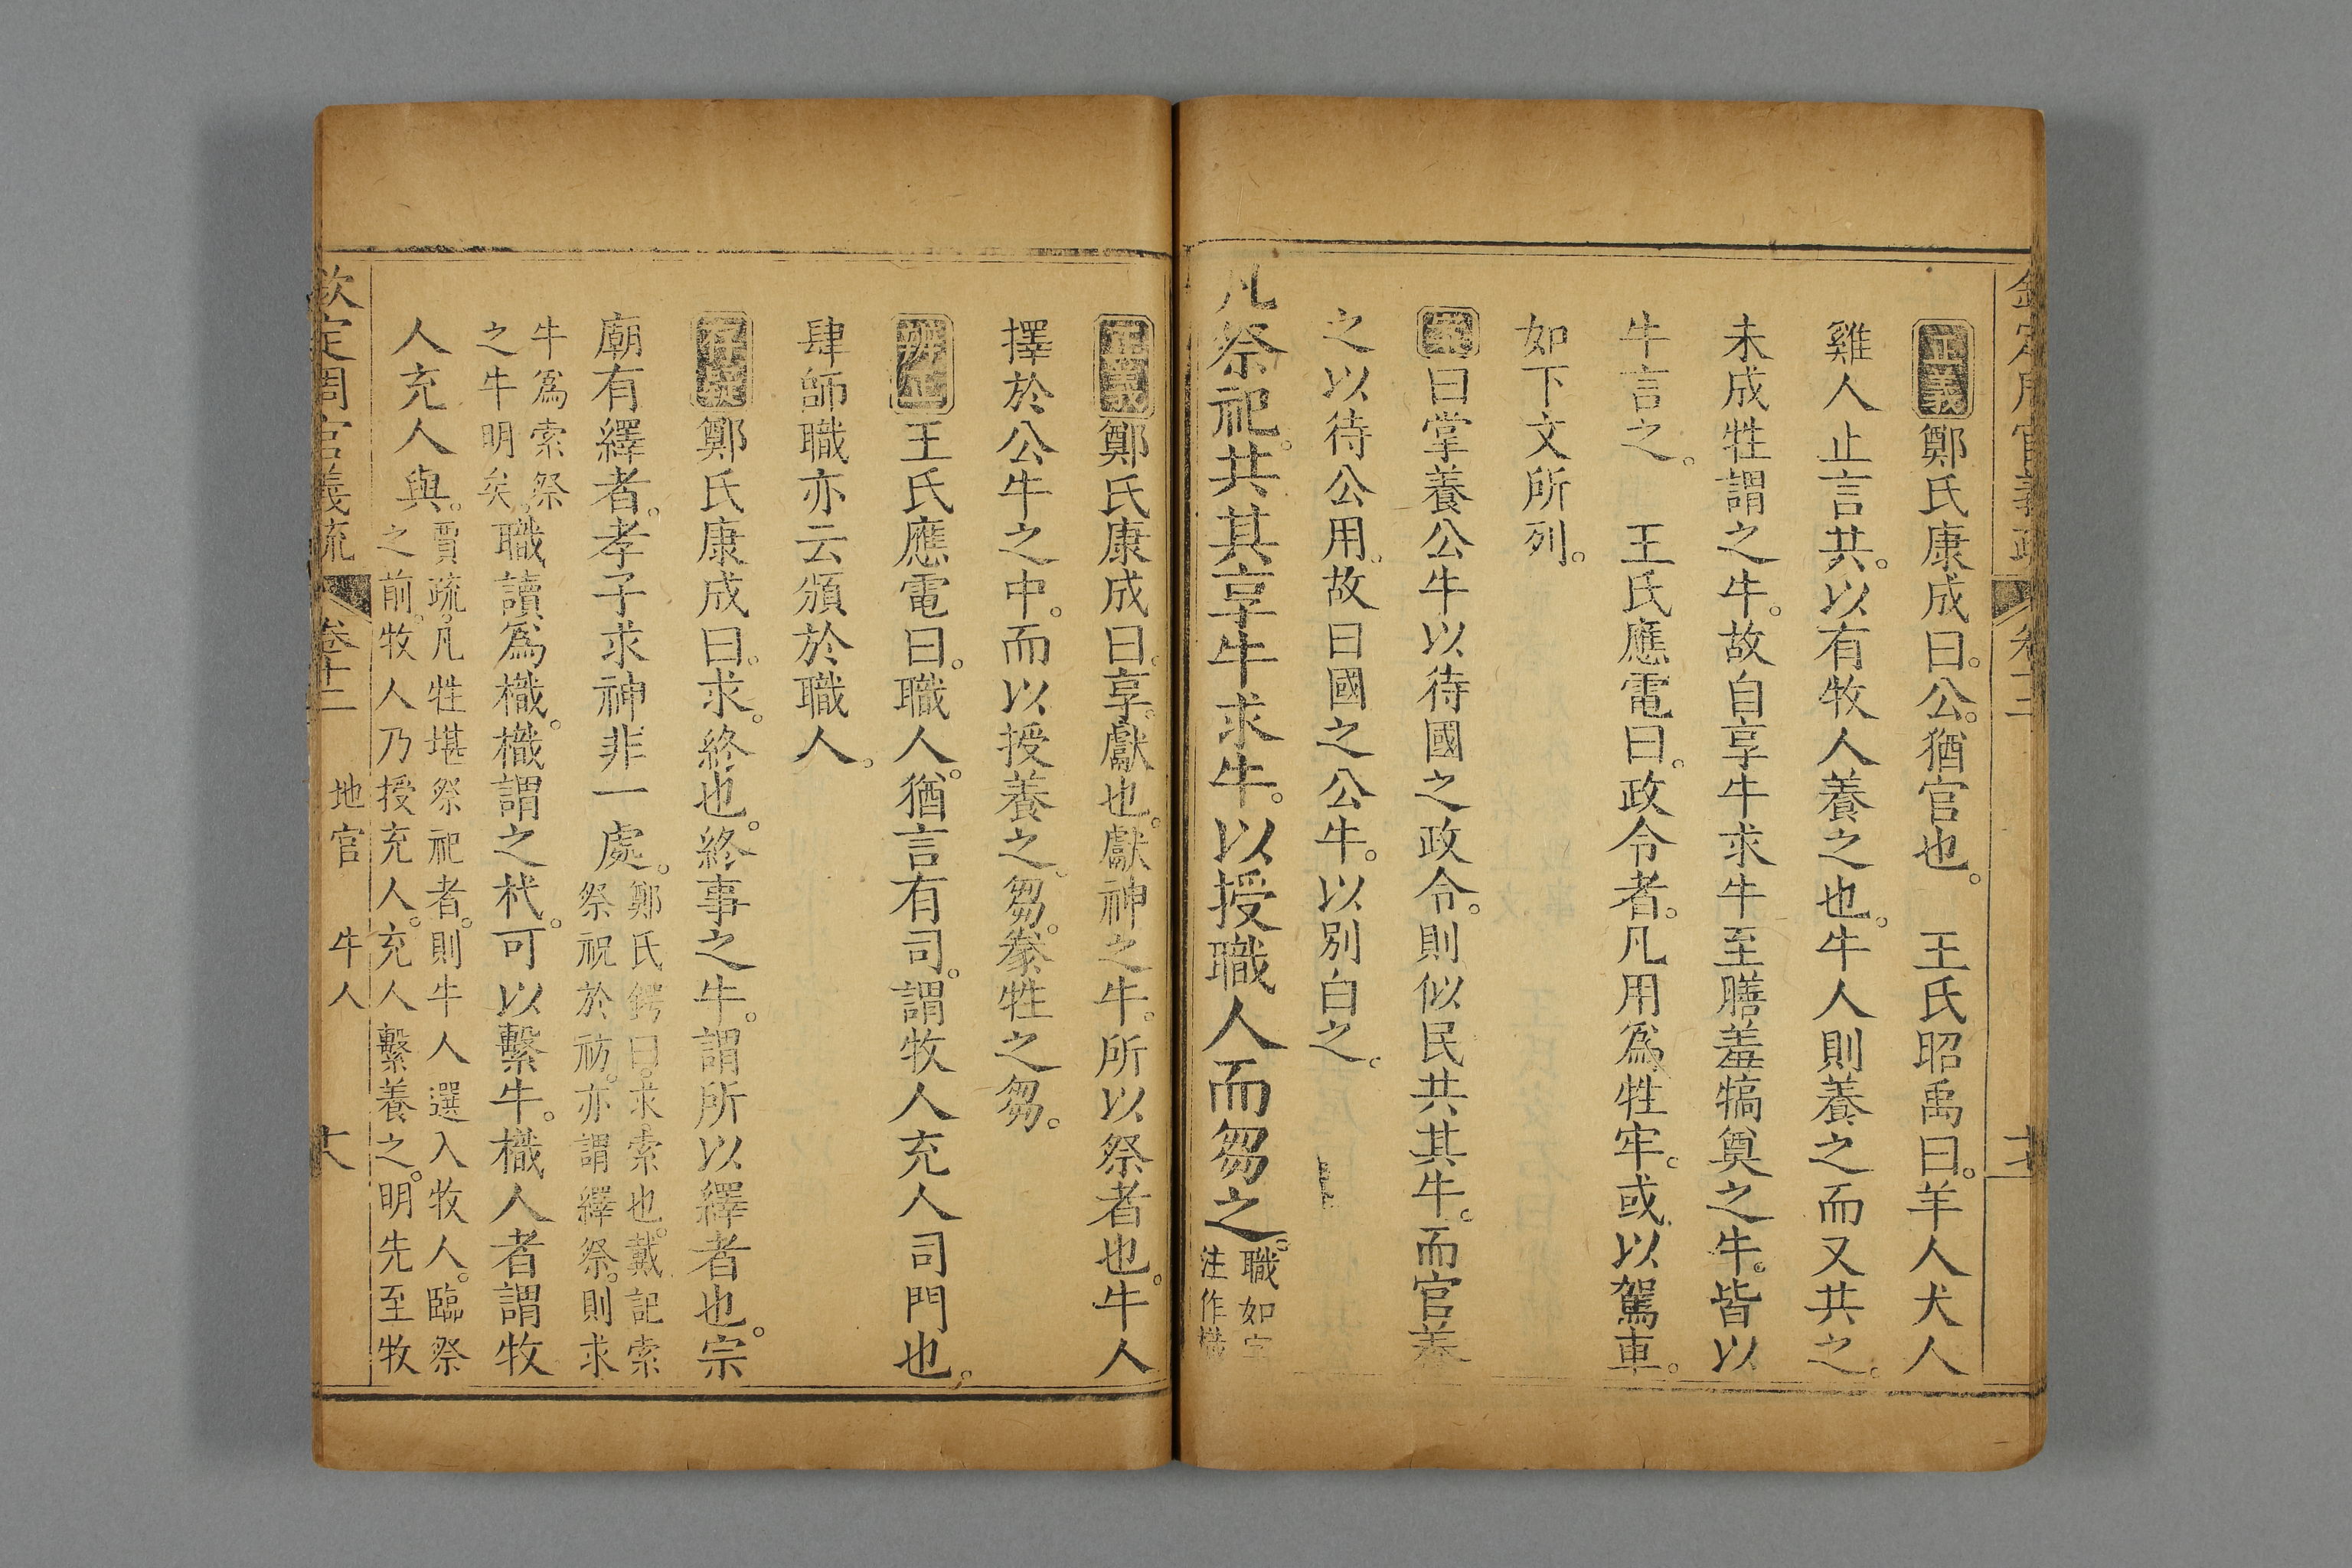 正義鄭氏康成曰。公。猶官也。　王氏昭禹曰。羊人犬人
雞人止言共。以有牧人養之也。牛人則養之而又共之。
未成牲謂之牛。故自享牛求牛至膳羞犒奠之牛。皆以
牛言之。　王氏應電曰。政令者。凡用爲牲牢。或以駕車。
如下文所列。
曰掌養公牛以待國之政令。則似民共其牛。而官養
之以待公用。故曰國之公牛。以別白之。
凡祭祀。共其享牛求牛。以授職人而芻之。職如字
注作樴
正義鄭氏康成曰。享。獻也。獻神之牛。所以祭者也。牛人
擇於公牛之中。而以授養之。芻。豢牲之芻。
辨正王氏應電曰。職人。猶言有司。謂牧人充人司門也。
肆師職亦云頒於職人。
存異鄭氏康成曰。求。終也。終事之牛。謂所以繹者也。宗
廟有繹者。孝子求神非一處。鄭氏鍔曰。求。索也。戴記索
祭祝於祊。亦謂繹祭。則求
牛爲索祭
之牛明矣。職讀爲樴。樴謂之杙。可以繫牛。樴人者謂牧
人充人與。賈疏。凡牲堪祭祀者。則牛人選入牧人。臨祭
之前。牧人乃授充人。充人繫養之。明先至牧
欽定周官義疏　卷十二　地官　牛人